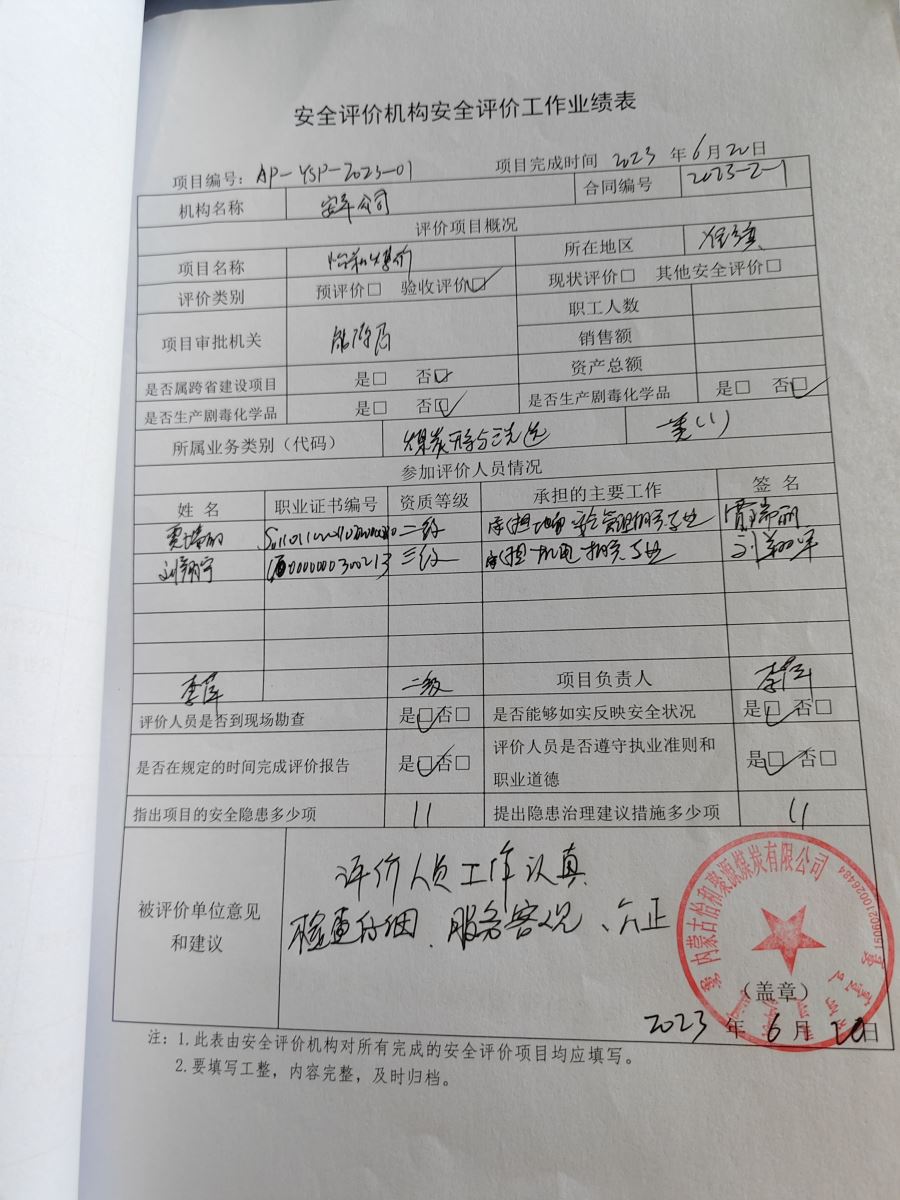 安全评价机构安全评价工作业绩表
项目编号：AP-YSP-2023-01 项目完成时间 2023 年 6 月 20 日
机构名称 安平公司 合同编号 2023-2-1
评价项目概况
项目名称 所在地区
评价类别 预评价□ 验收评价☑ 现状评价□ 其他安全评价□
项目审批机关 能源局 职工人数
销售额
资产总额
是否属跨省建设项目 是□ 否☑
是否生产剧毒化学品 是□ 否☑ 是否生产剧毒化学品 是□ 否☑
所属业务类别（代码） 煤炭 洗选
参加评价人员情况
姓 名 职业证书编号 资质等级 承担的主要工作 签 名
二级
三级 承担 机电 相关专业
李萍 二级 项目负责人 李萍
评价人员是否到现场勘查 是☑否□ 是否能够如实反映安全状况 是☑否□
是否在规定的时间完成评价报告 是☑否□ 评价人员是否遵守执业准则和
职业道德 是☑否□
指出项目的安全隐患多少项 11 提出隐患治理建议措施多少项 11
被评价单位意见
和建议
评价人员工作认真
检查仔细、服务客观、公正
内蒙古怡和聚源煤炭有限公司
（盖章）
2023 年 6 月 20 日
注：1.此表由安全评价机构对所有完成的安全评价项目均应填写。
2.要填写工整，内容完整，及时归档。